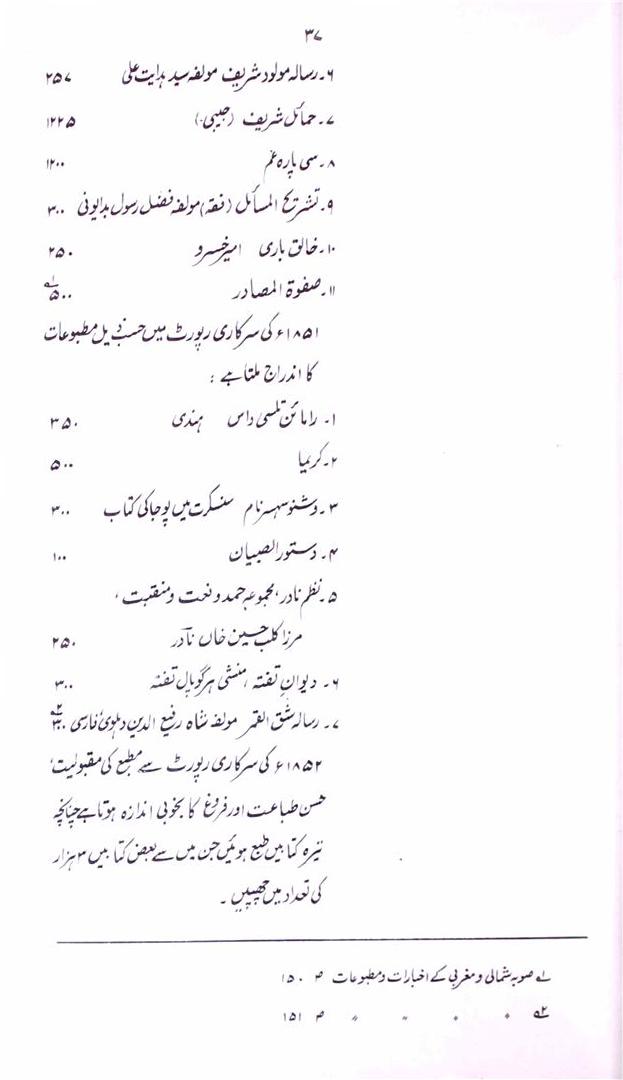 ۳۷
۶۔ رسالہ مولود شریف مولفہ سید ہدایت علی ۲۵۷
۷۔ حمائل شریف (جیبی) ۱۲۲۵
۸۔ سی پارہ عم ۱۲۰۰
۹۔ تشریح المسائل (فقہ) مولفہ فضل رسول بدایونی ۳۰۰
۱۰۔ خالق باری امیر خسرو ۲۵۰
۱۱۔ صفوۃ المصادر ۵۰۰ ؎۱
۱۸۵۱ء کی سرکاری رپورٹ میں حسب ذیل مطبوعات
کا اندراج ملتا ہے :
۱۔ رامائن تلسی داس ہندی ۳۵۰
۲۔ کریما ۵۰۰
۳۔ وشنو سہسر نام سنسکرت میں پوجا کی کتاب ۳۰۰
۴۔ دستور الصبیان ۱۰۰
۵۔ نظم نادر، مجموعہ حمد و نعت و منقبت،
مرزا کلب حسین خاں نادر ۲۵۰
۶۔ دیوانِ تفتہ، منشی ہرگوپال تفتہ ۳۰۰
۷۔ رسالہ شق القمر مولفہ شاہ رفیع الدین دہلوی فارسی ۳۰۰ ؎۲
۱۸۵۲ء کی سرکاری رپورٹ سے مطبع کی مقبولیت،
حسن طباعت اور فروغ کا بخوبی اندازہ ہوتا ہے چنانچہ
تیرہ کتابیں طبع ہوئیں جن میں سے بعض کتابیں ۳ ہزار
کی تعداد میں چھپیں۔
؎۱ صوبہ شمالی و مغربی کے اخبارات و مطبوعات ص ۱۵۰
؎۲ " " " " ص ۱۵۱